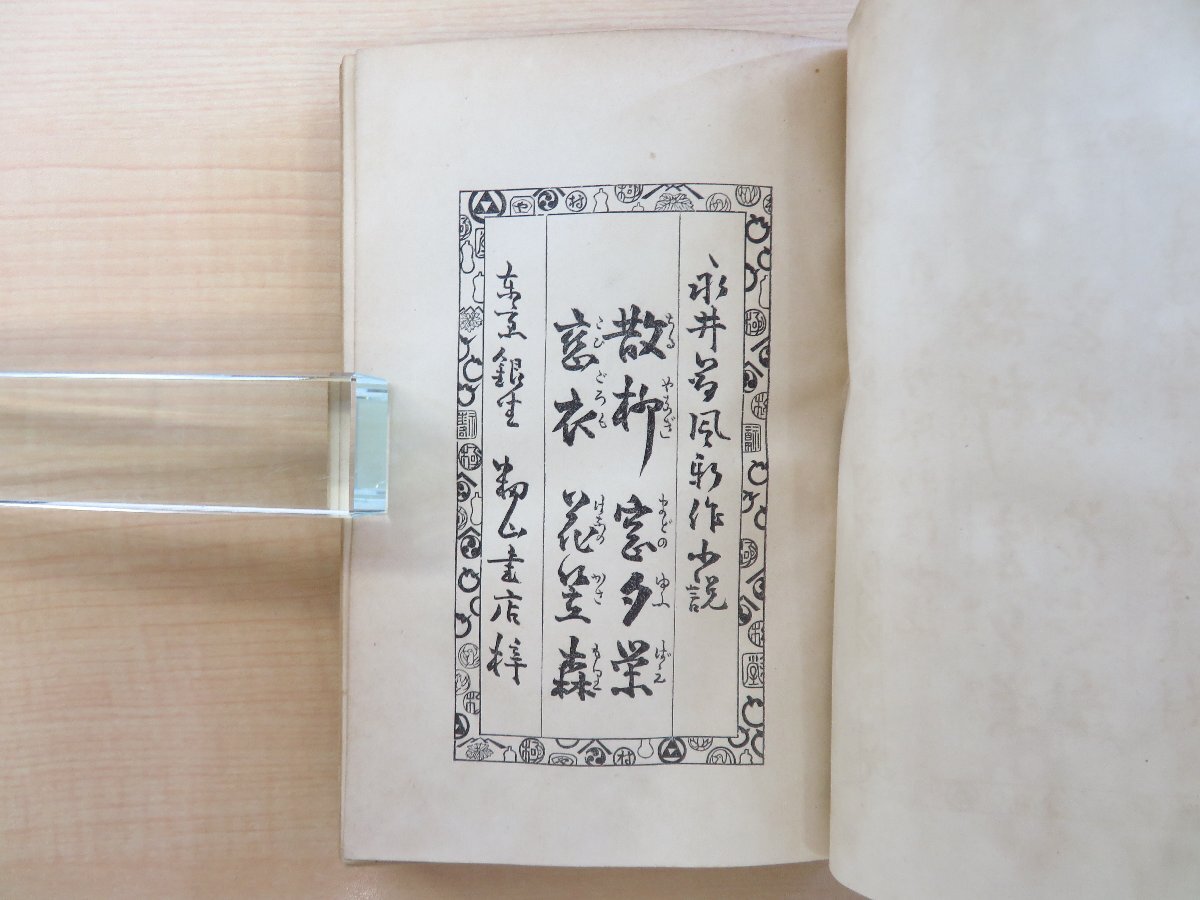 永井荷風新作小説
散柳窓夕栄
ちるやなぎまどのゆふばえ
恋衣花笠森
こひごろもはなのかさもり
東京銀座 籾山書店梓